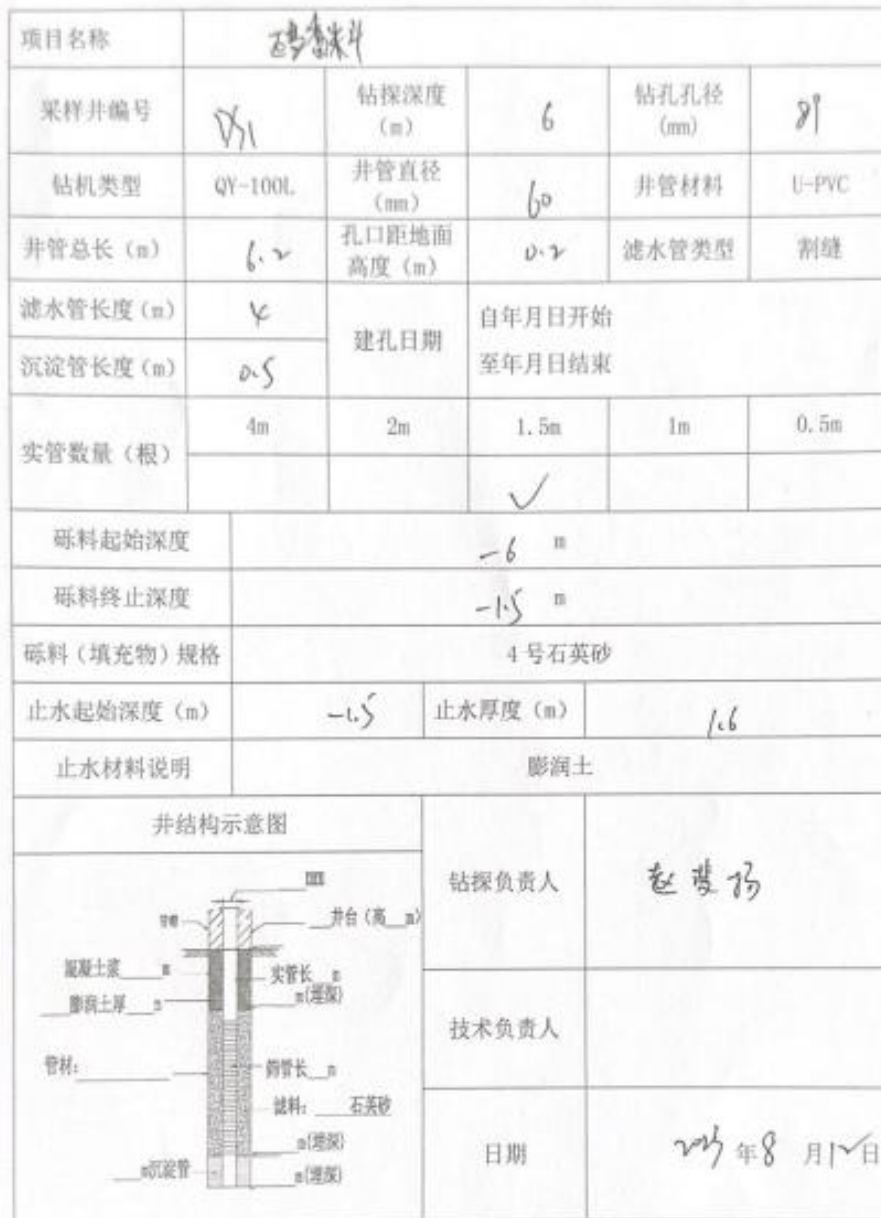 项目名称
采样井编号 钻探深度(m) 6 钻孔孔径(mm) 89
钻机类型 QY-100L 井管直径(mm) 60 井管材料 U-PVC
井管总长（m） 6.2 孔口距地面高度（m） 0.2 滤水管类型 割缝
滤水管长度(m) 4 建孔日期 自年月日开始
沉淀管长度(m) 0.5 至年月日结束
实管数量（根） 4m 2m 1.5m 1m 0.5m
✓
砾料起始深度 -6 m
砾料终止深度 -1.5 m
砾料（填充物）规格 4号石英砂
止水起始深度（m） -1.5 止水厚度（m） 1.6
止水材料说明 膨润土
井结构示意图
钻探负责人
管帽 井台（高__m）
混凝土浆____m 实管长__m
__m(埋深)
___膨润土厚__m
技术负责人
管材:________ 筛管长__m
滤料:____石英砂
__m(埋深)
___m沉淀管 __m(埋深)
日期 2023年8月12日